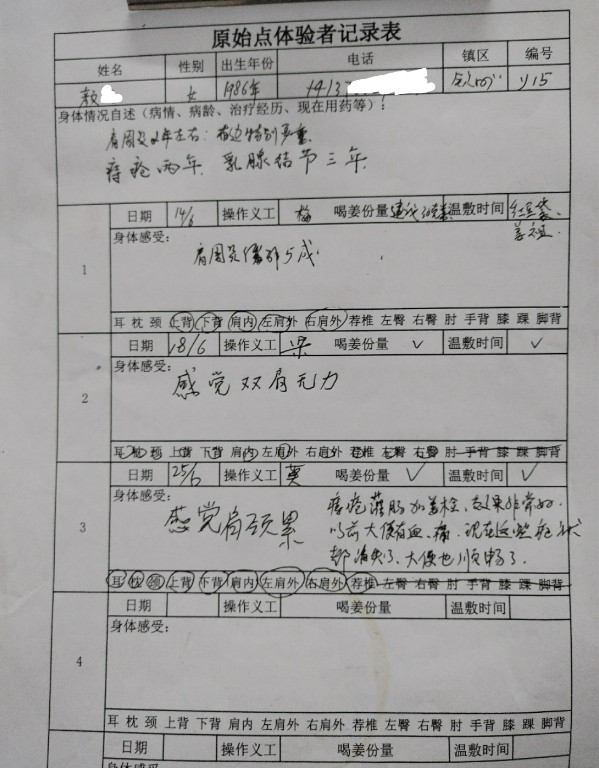 原始点体验者记录表
姓名 性别 出生年份 电话 镇区 编号
女 1986年 1413 Y15
身体情况自述（病情、病龄、治疗经历、现在用药等）：
肩周炎2年左右：右边特别严重.
痔疮两年. 乳腺结节三年.
1
日期 14/6 操作义工 梅 喝姜份量 温敷时间 红豆袋.
身体感受：
肩周炎 5成.
耳 枕 颈 上背 下背 肩内 左肩外 右肩外 荐椎 左臀 右臀 肘 手背 膝 踝 脚背
2
日期 18/6 操作义工 梁 喝姜份量 ✓ 温敷时间 ✓
身体感受：
感觉双肩无力
耳 枕 颈 上背 下背 肩内 左肩外 右肩外 荐椎 左臀 右臀 肘 手背 膝 踝 脚背
3
日期 25/6 操作义工 喝姜份量 ✓ 温敷时间 ✓
身体感受：
感觉肩颈累
痔疮灌肠加姜栓，效果非常好.
以前大便有血、痛. 现在这些症状
都消失了、大便也顺畅了.
耳 枕 颈 上背 下背 肩内 左肩外 右肩外 荐椎 左臀 右臀 肘 手背 膝 踝 脚背
4
日期 操作义工 喝姜份量 温敷时间
身体感受：
耳 枕 颈 上背 下背 肩内 左肩外 右肩外 荐椎 左臀 右臀 肘 手背 膝 踝 脚背
日期 操作义工 喝姜份量 温敷时间
身体感受：